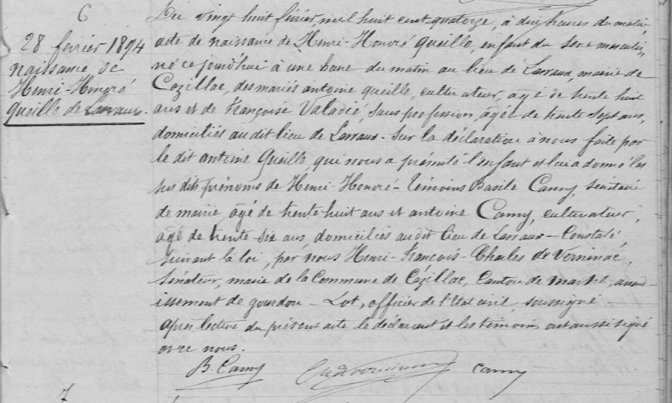 6
28 février 1894
naissance de
Henri-Honoré
Queille de Larraux.
Du vingt huit février mil huit cent quatorze, à deux heures du matin
acte de naissance de Henri-Honoré Queille, enfant du sexe masculin,
né ce jourd'hui à une heure du matin au lieu de Larraux, mairie de
Cazillac, des mariés antoine queille, cultivateur, agé de trente huit
ans et de françoise Valadié sans profession, agée de trente sept ans,
domiciliés au dit lieu de Larraux - Sur la déclaration à nous faite par
le dit antoine Queille qui nous a présenté l'enfant et lui a donné les
sus dits prénoms de Henri-Honoré - témoins Basile Camy, secrétaire
de mairie âgé de trente huit ans et antoine Camy, cultivateur,
âgé de trente six ans, domiciliés au dit lieu de Larraux - Constaté
suivant la loi, par nous Henri-François-Charles de Verninac,
Sénateur, maire de la Commune de Cazillac, Canton de martel, arron-
dissement de gourdon - Lot, officier de l'état civil soussigné
après lecture du présent acte le déclarant et les témoins ont aussi signé
avec nous.
B. Camy Ch deverninac Camy
7